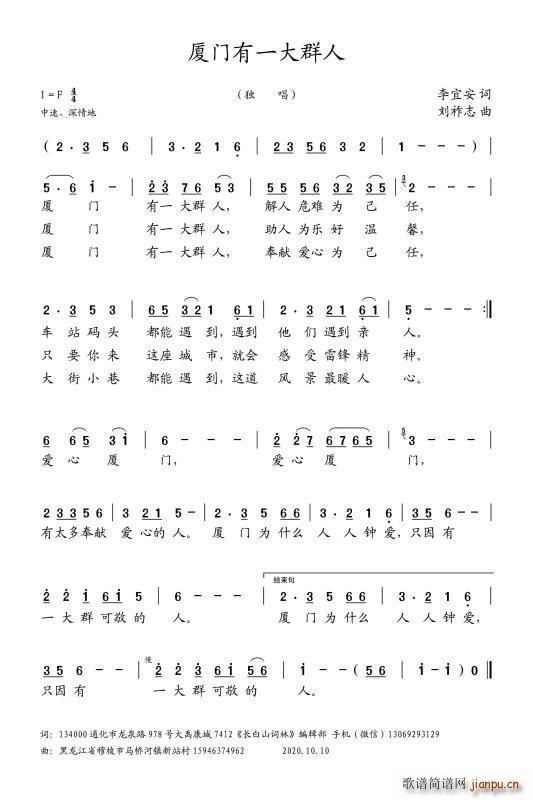 厦门有一大群人
1=F 4/4 （独 唱） 李宜安 词
中速、深情地 刘祚志 曲
( 2· 3 5 6 | 3· 2 1 6 | 2 3 5 6 3 2 | 1 - - - )
5· 6 i - | 2 3 7 6 5 3 | 5 5 5 6 3 2 3 5 | 3 2 - - - |
厦 门 有一大群人， 解人危难为 己 任，
厦 门 有一大群人， 助人为乐好 温 馨，
厦 门 有一大群人， 奉献爱心为 己 任，
2· 3 5 3 | 6 5 3 2 1 6 1 | 2· 3 2 1 6 1 | 5 - - - :||
车 站 码 头 都能 遇 到，遇到 他 们 遇到 亲 人。
只 要 你 来 这座 城 市，就会 感 受 雷锋 精 神。
大 街 小 巷 都能 遇 到，这道 风 景 最暖 人 心。
6 6 5 3 i | 6 - - - | 2 2 7 6 7 6 5 | 5 3 - - - |
爱 心 厦 门， 爱 心 厦 门，
2 3 3 5 6 | 3 2 1 5 - | 2· 3 5 6 5 | 3· 2 1 6 | 3 5 6 - - |
有太多奉献 爱 心的 人。 厦 门 为 什么 人 人 钟 爱，只因 有
2 2 i 6 i 5 | 6 - - - | 结束句 2· 3 5 6 5 | 3· 2 1 6 |
一 大 群 可敬 的 人。 厦 门 为什么 人 人 钟 爱，
3 5 6 - - | 慢 2· 2 2 3 6 i 5 6 | i - - - | ( 5 5 6 | i - i ) 0 ||
只因 有 一 大 群 可敬 的 人。
词：134000 通化市龙泉路 978 号大禹康城 7412《长白山词林》编辑部 手机（微信）13069293129
曲：黑龙江省穆棱市马桥河镇新站村 15946374962 2020.10.10
歌谱简谱网
www.jianpu.cn